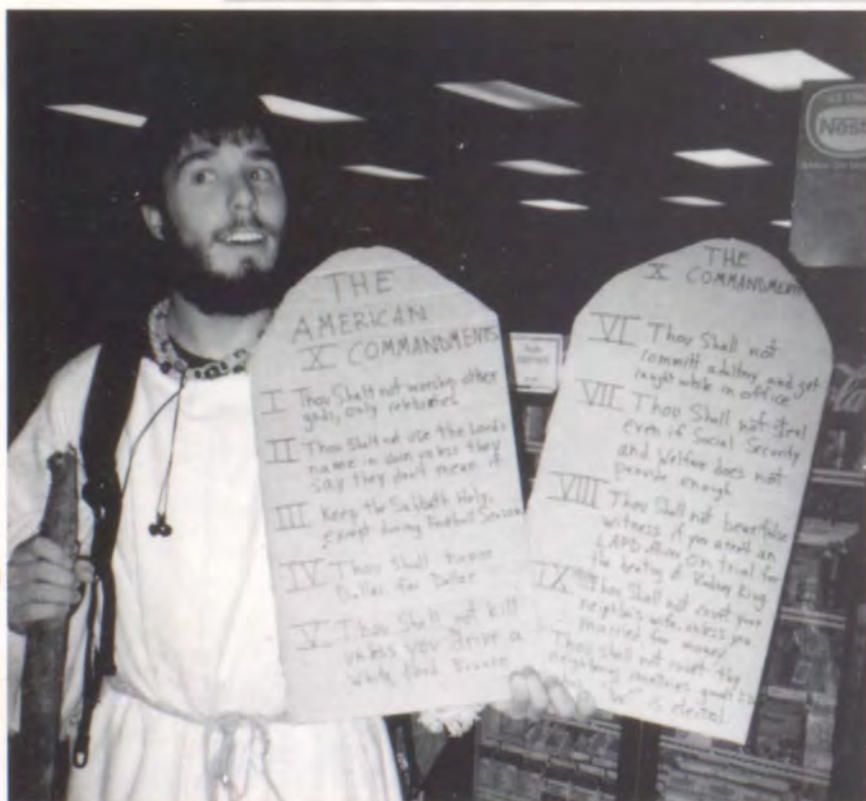 THE
AMERICAN
X COMMANDMENTS
I Thou Shalt not worship other
gods, only celebrities
II Thou Shalt not use the Lord's
name in vain unless they
say they don't mean it
III Keep the Sabbath Holy,
except during Football Season
IV Thou Shall honor
Dollar for Dollar
V Thou Shall not kill
unless you drive a
White Ford Bronco
THE
X COMMANDMENTS
VI Thou Shall not
committ adultery and get
caught while in office
VII Thou Shall not steal
even if Social Security
and Welfare does not
provide enough
VIII Thou Shall not bear false
witness if you aren't an
LAPD officer On trial for
the beating of Rodney King
IX Thou Shall not covet your
neighbor's wife, unless you
married for money
Thou shall not covet thy
neighboring countries goods
"W" is elected